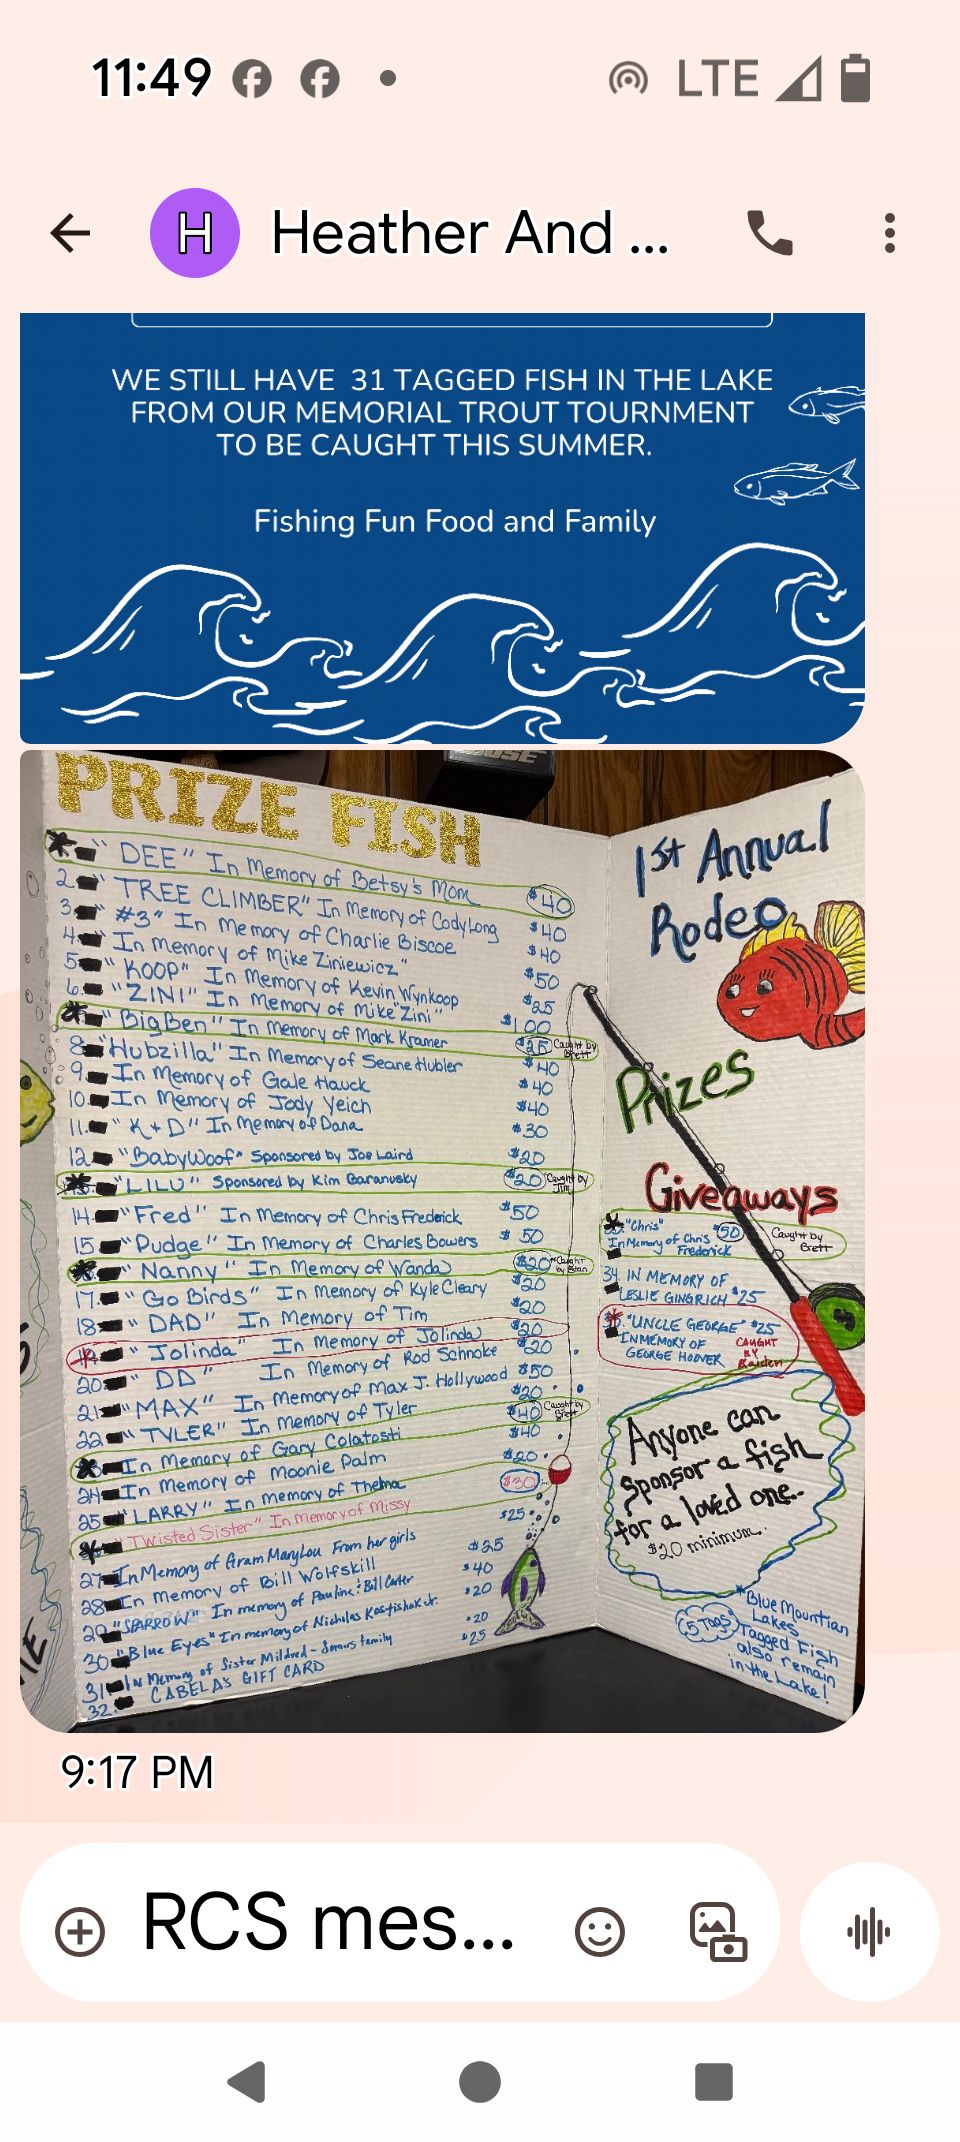 11:49
LTE
H Heather And ...
WE STILL HAVE 31 TAGGED FISH IN THE LAKE
FROM OUR MEMORIAL TROUT TOURNMENT
TO BE CAUGHT THIS SUMMER.
Fishing Fun Food and Family
PRIZE FISH
"DEE" In Memory of Betsy's Mom $40
2. "TREE CLIMBER" In Memory of Cody Long $40
3. "#3" In Memory of Charlie Biscoe $40
4. In Memory of Mike Ziniewicz" $50
5. "KOOP" In Memory of Kevin Wynkoop $25
6. "ZINI" In Memory of Mike "Zini" $100
"BigBen" In Memory of Mark Kramer $25 Caught by Brett
8. "Hubzilla" In Memory of Seane Hubler $40
9. In Memory of Gale Hauck $40
10. In Memory of Jody Yeich $40
11. "K+D" In Memory of Dana $30
12 "BabyWoof" Sponsored by Joe Laird $20
"LILU" Sponsored by Kim Baranusky $20 Caught by Jim
14. "Fred" In Memory of Chris Frederick $50
15 "Pudge" In Memory of Charles Bowers $50
"Nanny" In Memory of Wanda $20 Caught by
17. "Go Birds" In Memory of Kyle Cleary $20
18. "DAD" In Memory of Tim $20
"Jolinda" In Memory of Jolinda $20
20. "DD" In Memory of Rod Schnoke $20
21. "MAX" In Memory of Max J. Hollywood $50
22. "TYLER" In Memory of Tyler $20
In Memory of Gary Colatosti $40 Caught by Brett
24. In Memory of Moonie Palm $40
25. "LARRY" In Memory of Thelma $20
"Twisted Sister" In Memory of Missy $30
27. In Memory of Gram MaryLou From her girls $25
28. In Memory of Bill Wolfskill $25
29. "SPARROW" In memory of Pauline & Bill Carter $40
30. "Blue Eyes" In memory of Nicholas Kostishak Jr. $20
31. In Memory of Sister Mildred - Somers family $20
32. CABELA'S GIFT CARD $25
1st Annual
Rodeo
Prizes
Giveaways
"Chris" $50
In Memory of Chris
Frederick
Caught by
Brett
34. IN MEMORY OF
LESLIE GINGRICH $25
"UNCLE GEORGE" $25
IN MEMORY OF
GEORGE HOOVER
CAUGHT
BY
Raiden
Anyone can
sponsor a fish
for a loved one.
$20 minimum.
5 TAGS
*Blue Mountian
Lakes
Tagged Fish
also remain
in the Lake!
9:17 PM
RCS mes...